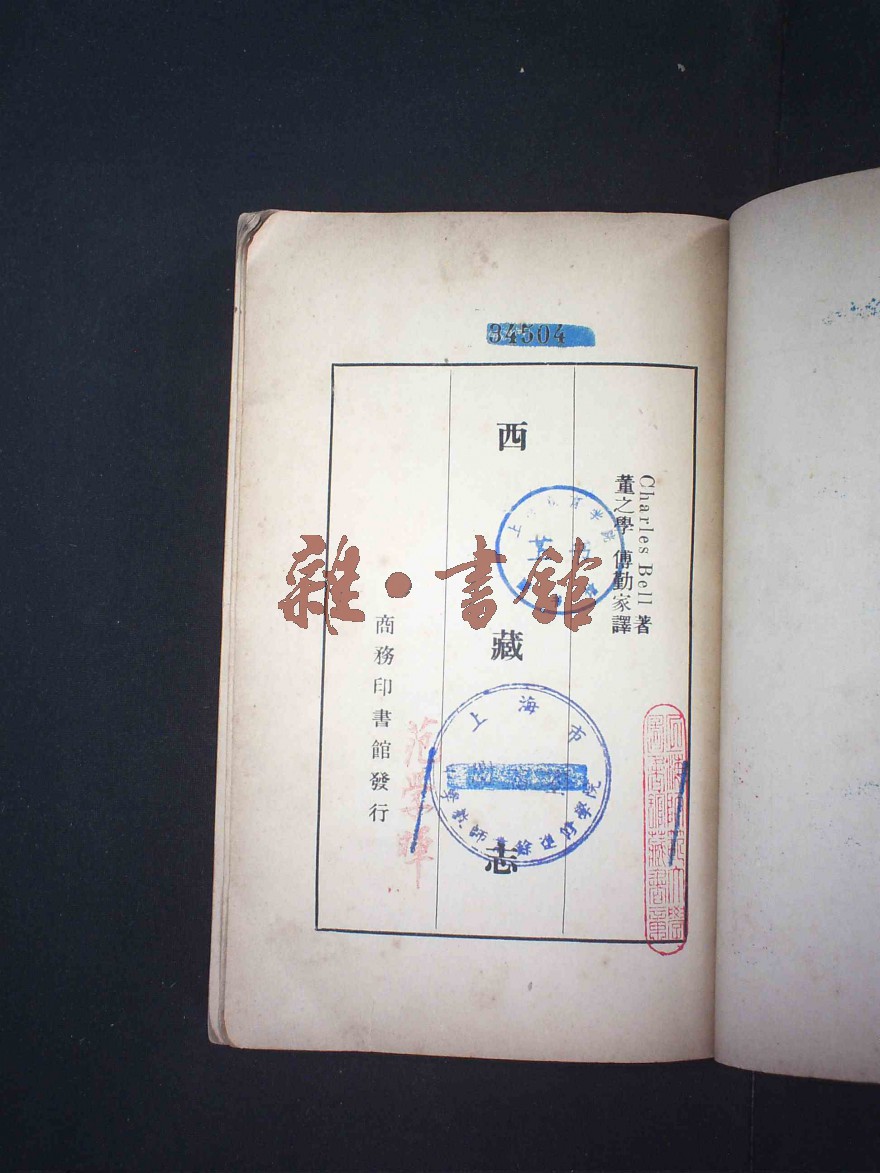 34504
Charles Bell 著
董之學 傅勤家 譯
西藏志
商務印書館發行
雜·書館
范學暉
上海市